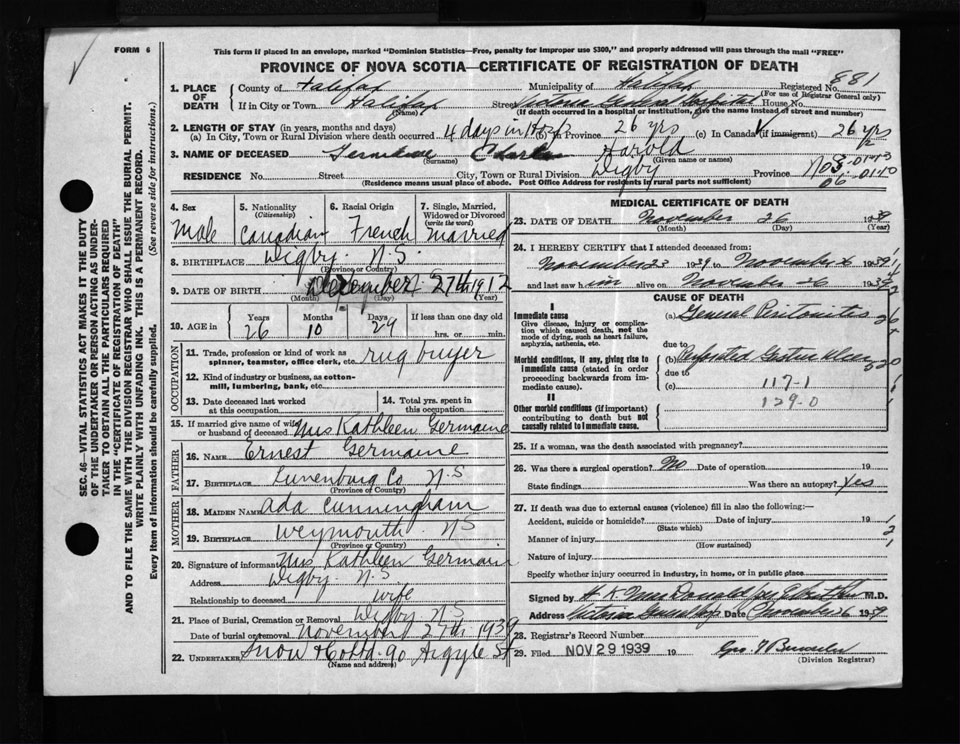 FORM 6
This form if placed in an envelope, marked "Dominion Statistics—Free, penalty for improper use $300," and properly addressed will pass through the mail "FREE"
PROVINCE OF NOVA SCOTIA—CERTIFICATE OF REGISTRATION OF DEATH
1. PLACE OF DEATH County of Halifax Municipality of Halifax Registered No. 881
(For use of Registrar General only)
If in City or Town Halifax Street Victoria General Hospital House No.
(Name) (If death occurred in a hospital or institution, give the name instead of street and number)
2. LENGTH OF STAY (in years, months and days)
(a) In City, Town or Rural Division where death occurred 4 days in Hosp (b) in Province 26 yrs (c) In Canada (if immigrant) 26 yrs
3. NAME OF DECEASED Germaine Charles Harold
(Surname) (Given name or names)
RESIDENCE No. Street City, Town or Rural Division Digby Province N.S.
(Residence means usual place of abode. Post Office Address for residents in rural parts not sufficient)
4. Sex Male
5. Nationality (Citizenship) Canadian
6. Racial Origin French
7. Single, Married, Widowed or Divorced (write the word) Married
8. BIRTHPLACE Digby N.S.
(Province or Country)
9. DATE OF BIRTH December 27th 1912
(Month) (Day) (Year)
10. AGE in Years 26 Months 10 Days 29 If less than one day old
hrs. or min.
OCCUPATION
11. Trade, profession or kind of work as spinner, teamster, office clerk, etc. rug buyer
12. Kind of industry or business, as cotton-mill, lumbering, bank, etc.
13. Date deceased last worked at this occupation
14. Total yrs. spent in this occupation
15. If married give name of wife or husband of deceased Mrs Kathleen Germaine
FATHER
16. Name Ernest Germaine
17. Birthplace Lunenburg Co N.S
(Province or Country)
MOTHER
18. Maiden Name Ada Cunningham
19. Birthplace Weymouth N S
(Province or Country)
20. Signature of informant Mrs Kathleen Germain
Address Digby N.S.
Relationship to deceased wife
21. Place of Burial, Cremation or Removal Digby N S
Date of burial or removal November 27th 1939
22. UNDERTAKER Snow & Co Ltd 90 Argyle St
(Name and address)
MEDICAL CERTIFICATE OF DEATH
23. DATE OF DEATH November 26 1939
(Month) (Day) (Year)
24. I HEREBY CERTIFY that I attended deceased from:
November 23 1939 to November 26 1939
and last saw him alive on November 26 1939
CAUSE OF DEATH
I
Immediate cause
Give disease, injury or complication which caused death, not the mode of dying, such as heart failure, asphyxia, asthenia, etc.
(a) General Peritonitis
due to
Morbid conditions, if any, giving rise to immediate cause (stated in order proceeding backwards from immediate cause).
(b) Perforated Gastric Ulcer
due to
(c) 117-1
129-0
II
Other morbid conditions (if important) contributing to death but not causally related to immediate cause.
25. If a woman, was the death associated with pregnancy?
26. Was there a surgical operation? No Date of operation 19
State findings Was there an autopsy? Yes
27. If death was due to external causes (violence) fill in also the following:—
Accident, suicide or homicide? Date of injury 19
(State which)
Manner of injury
(How sustained)
Nature of injury
Specify whether injury occurred in industry, in home, or in public place
Signed by H. K. MacDonald per M.D.
Address Victoria General Hosp Date November 26 1939
28. Registrar's Record Number
29. Filed NOV 29 1939 19
(Division Registrar)
SEC. 46—VITAL STATISTICS ACT MAKES IT THE DUTY OF THE UNDERTAKER OR PERSON ACTING AS UNDERTAKER TO OBTAIN ALL THE PARTICULARS REQUIRED IN THE "CERTIFICATE OF REGISTRATION OF DEATH" AND TO FILE THE SAME WITH THE DIVISION REGISTRAR WHO SHALL ISSUE THE BURIAL PERMIT.
WRITE PLAINLY WITH UNFADING INK. THIS IS A PERMANENT RECORD.
Every item of Information should be carefully supplied. (See reverse side for instructions.)